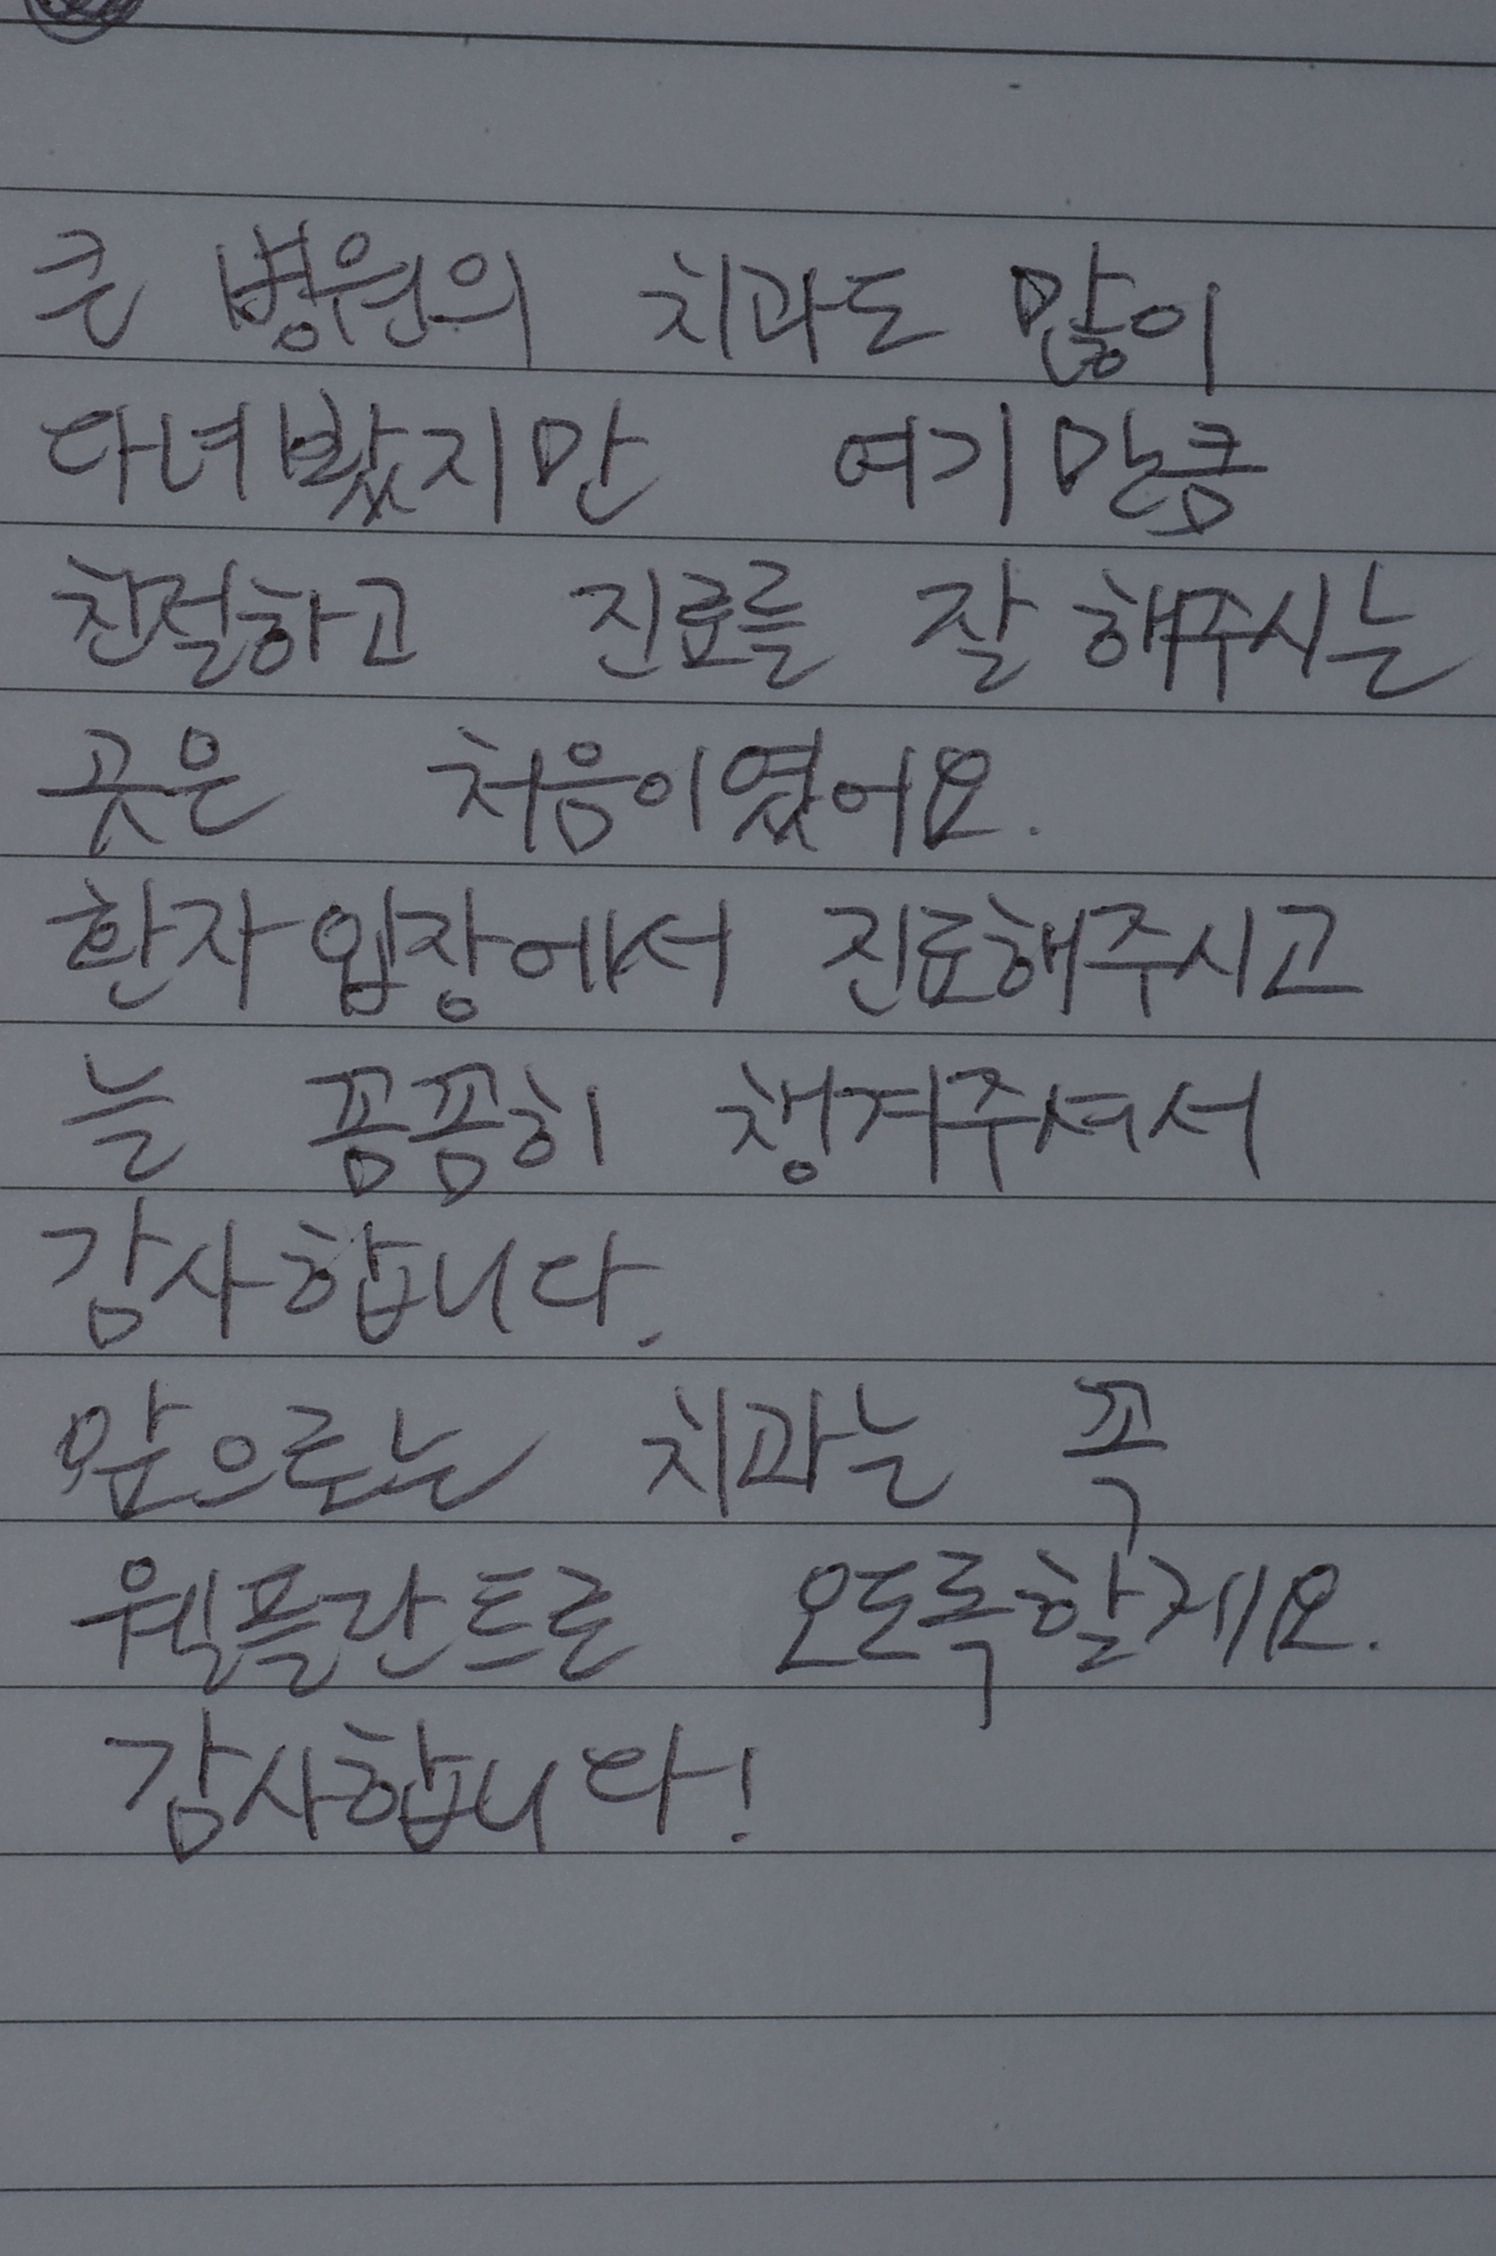 큰 병원의 치과도 많이
다녀봤지만 여기만큼
친절하고 진료를 잘 해주시는
곳은 처음이였어요.
환자 입장에서 진료해주시고
늘 꼼꼼히 챙겨주셔서
감사합니다.
앞으로는 치과는 꼭
웰플란트로 오도록할게요.
감사합니다!